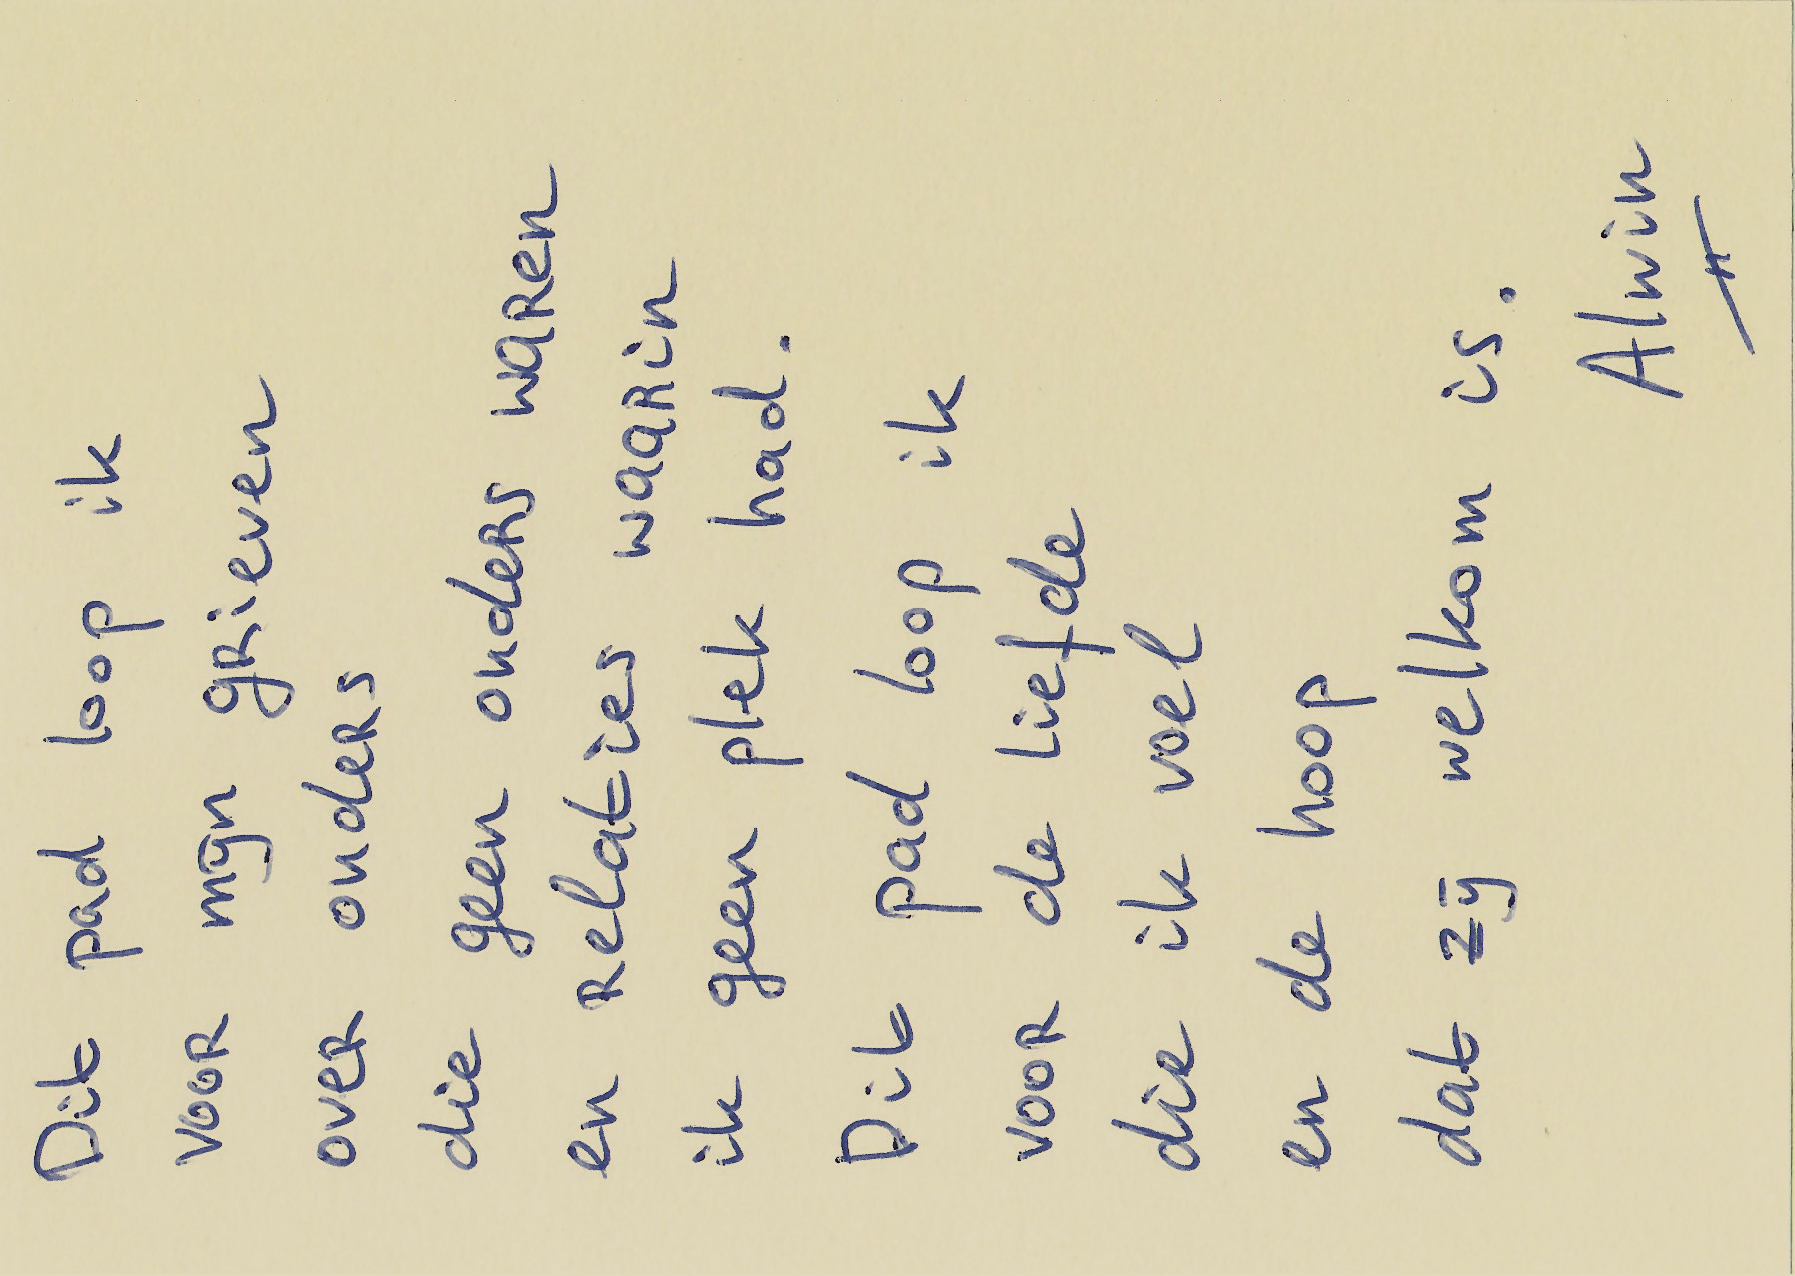 Dit pad loop ik
voor mijn grieven
over onders
die geen onders waren
en relaties waarin
ik geen plek had.
Dit pad loop ik
voor de liefde
die ik voel
en de hoop
dat zij welkom is.
Alwin